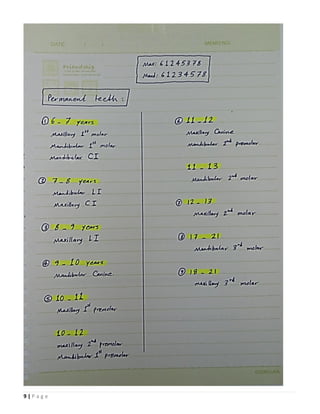 DATE: / /
MEMO NO.
Friendship
Max: 61245378
Mand: 61234578
Permanent teeth:
① 6 - 7 years
Maxillary 1st molar
Mandibular 1st molar
Mandibular CI
② 7 - 8 years
Mandibular LI
Maxillary CI
③ 8 - 9 years
Maxillary LI
④ 9 - 10 years
Mandibular Canine
⑤ 10 - 11
Maxillary 1st premolar
10 - 12
Maxillary 2nd premolar
Mandibular 1st premolar
⑥ 11 - 12
Maxillary Canine
Mandibular 2nd premolar
11 - 13
Mandibular 2nd molar
⑦ 12 - 13
Maxillary 2nd molar
⑧ 17 - 21
Mandibular 3rd molar
⑨ 18 - 21
Maxillary 3rd molar
9 | Page